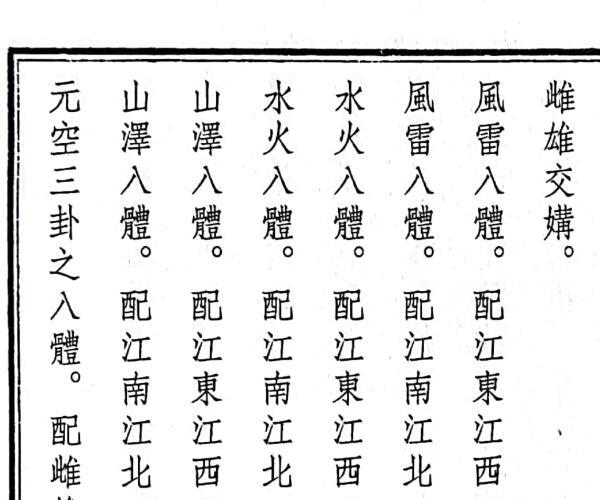 雌雄交媾。
風雷入體。配江東江西
風雷入體。配江南江北
水火入體。配江東江西
水火入體。配江南江北
山澤入體。配江東江西
山澤入體。配江南江北
元空三卦之入體。配雌